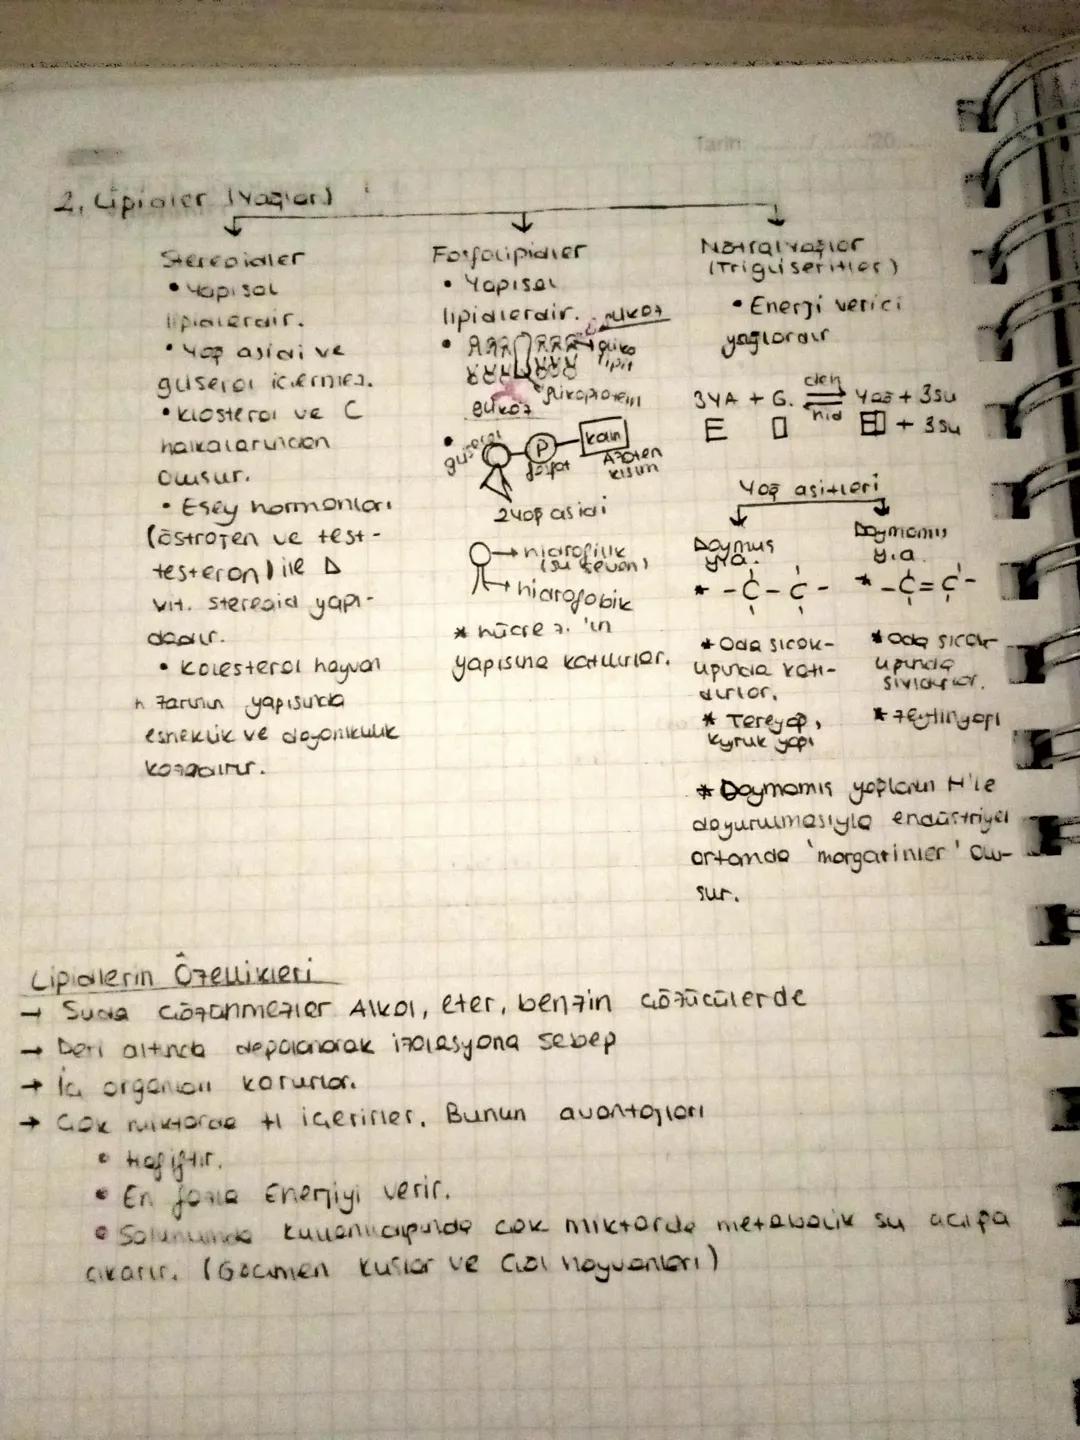 Tarih: ....../....../20......
2. Lipidler (Yağlar)
Steroidler
• Yapısal
lipidlerdir.
• Yağ asidi ve
gliserol içermez.
• Klosterol ve C
halkalarından
oluşur.
• Eşey hormonları
(östrojen ve test-
testeron) ile D
vit. steroid yapı-
dadır.
• Kolesterol hayvan
h. zarının yapısında
esneklik ve dayanıklılık
kazandırır.
Fosfolipidler
• Yapısal
lipidlerdir.
glikoz
gliko
lipit
glikoprotein
glikoz
• gliserol
P
fosfat
kolin
Azoten
kısım
2 yağ asidi
hidrofilik
(su seven)
hidrofobik
* hücre z. 'ın
yapısına katılırlar.
Nötralyağlar
(Trigliseritler)
• Enerji verici
yağlardır
3YA + G. deh Yağ + 3su
hid
+ 3su
Yağ asitleri
Doymuş
y.a.
* -C-C-
* Oda sıcak-
lığında katı-
dırlar.
* Tereyağ,
kuyruk yağı
Doymamış
y.a.
* -C=C-
* Oda sıcak-
lığında
sıvıdırlar.
* Zeytinyağı
* Doymamış yağların H'le
doyurulmasıyla endüstriyel
ortamda 'margarinler' olu-
şur.
Lipidlerin Özellikleri
→ Suda çözünmezler Alkol, eter, benzin çözücülerde
→ Deri altında depolanarak izolasyona sebep
→ İç organları korurlar.
→ Çok miktarda H içerirler. Bunun avantajları
• Hafiftir.
• En fazla Enerjiyi verir.
• Solunumda kullanıldığında çok miktarda metabolik su açığa
çıkarır. (Göçmen kuşlar ve Çöl hayvanları)